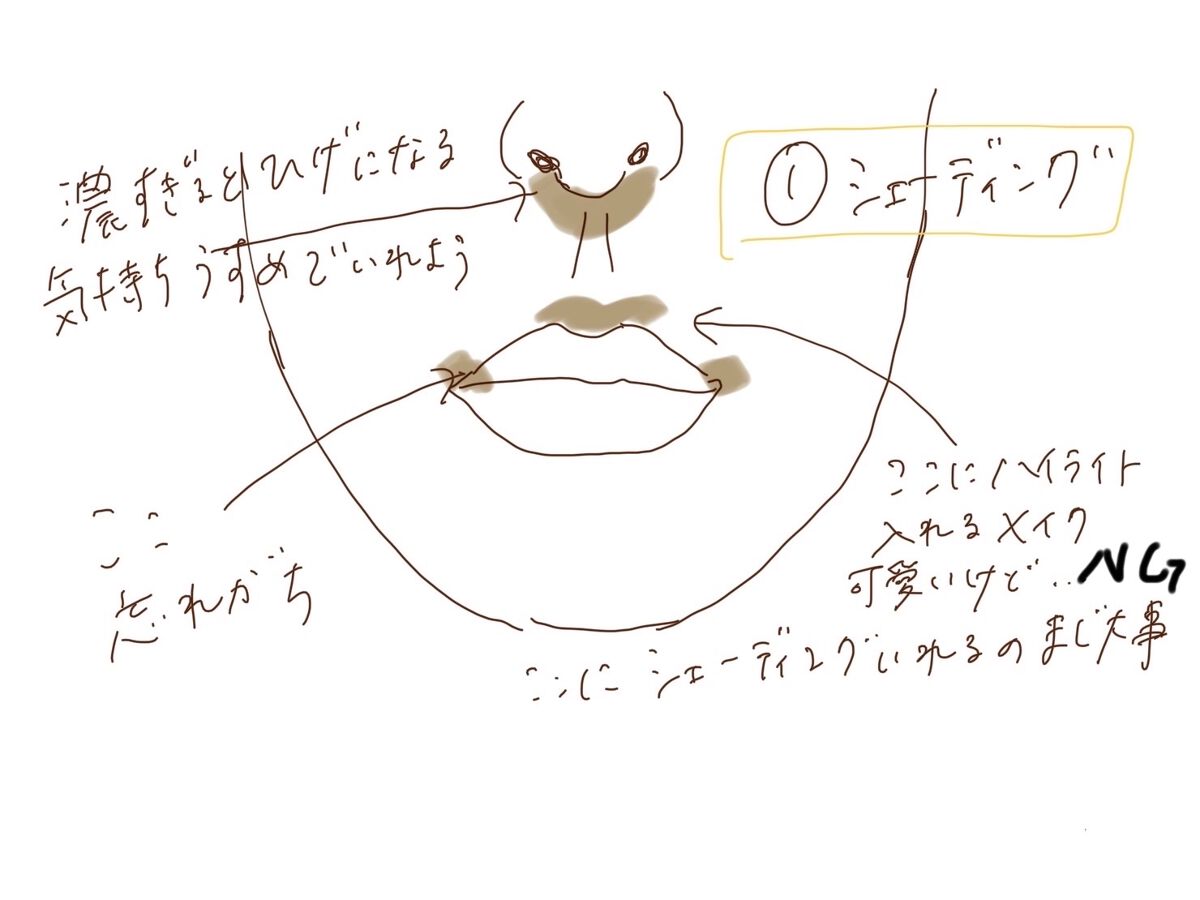 ① シェーディング
濃すぎるとひげになる
気持ちうすめでいれよう
ここ
忘れがち
ここにハイライト
入れるメイク
可愛いけど‥NG
ここにシェーディングいれるのまじ大事